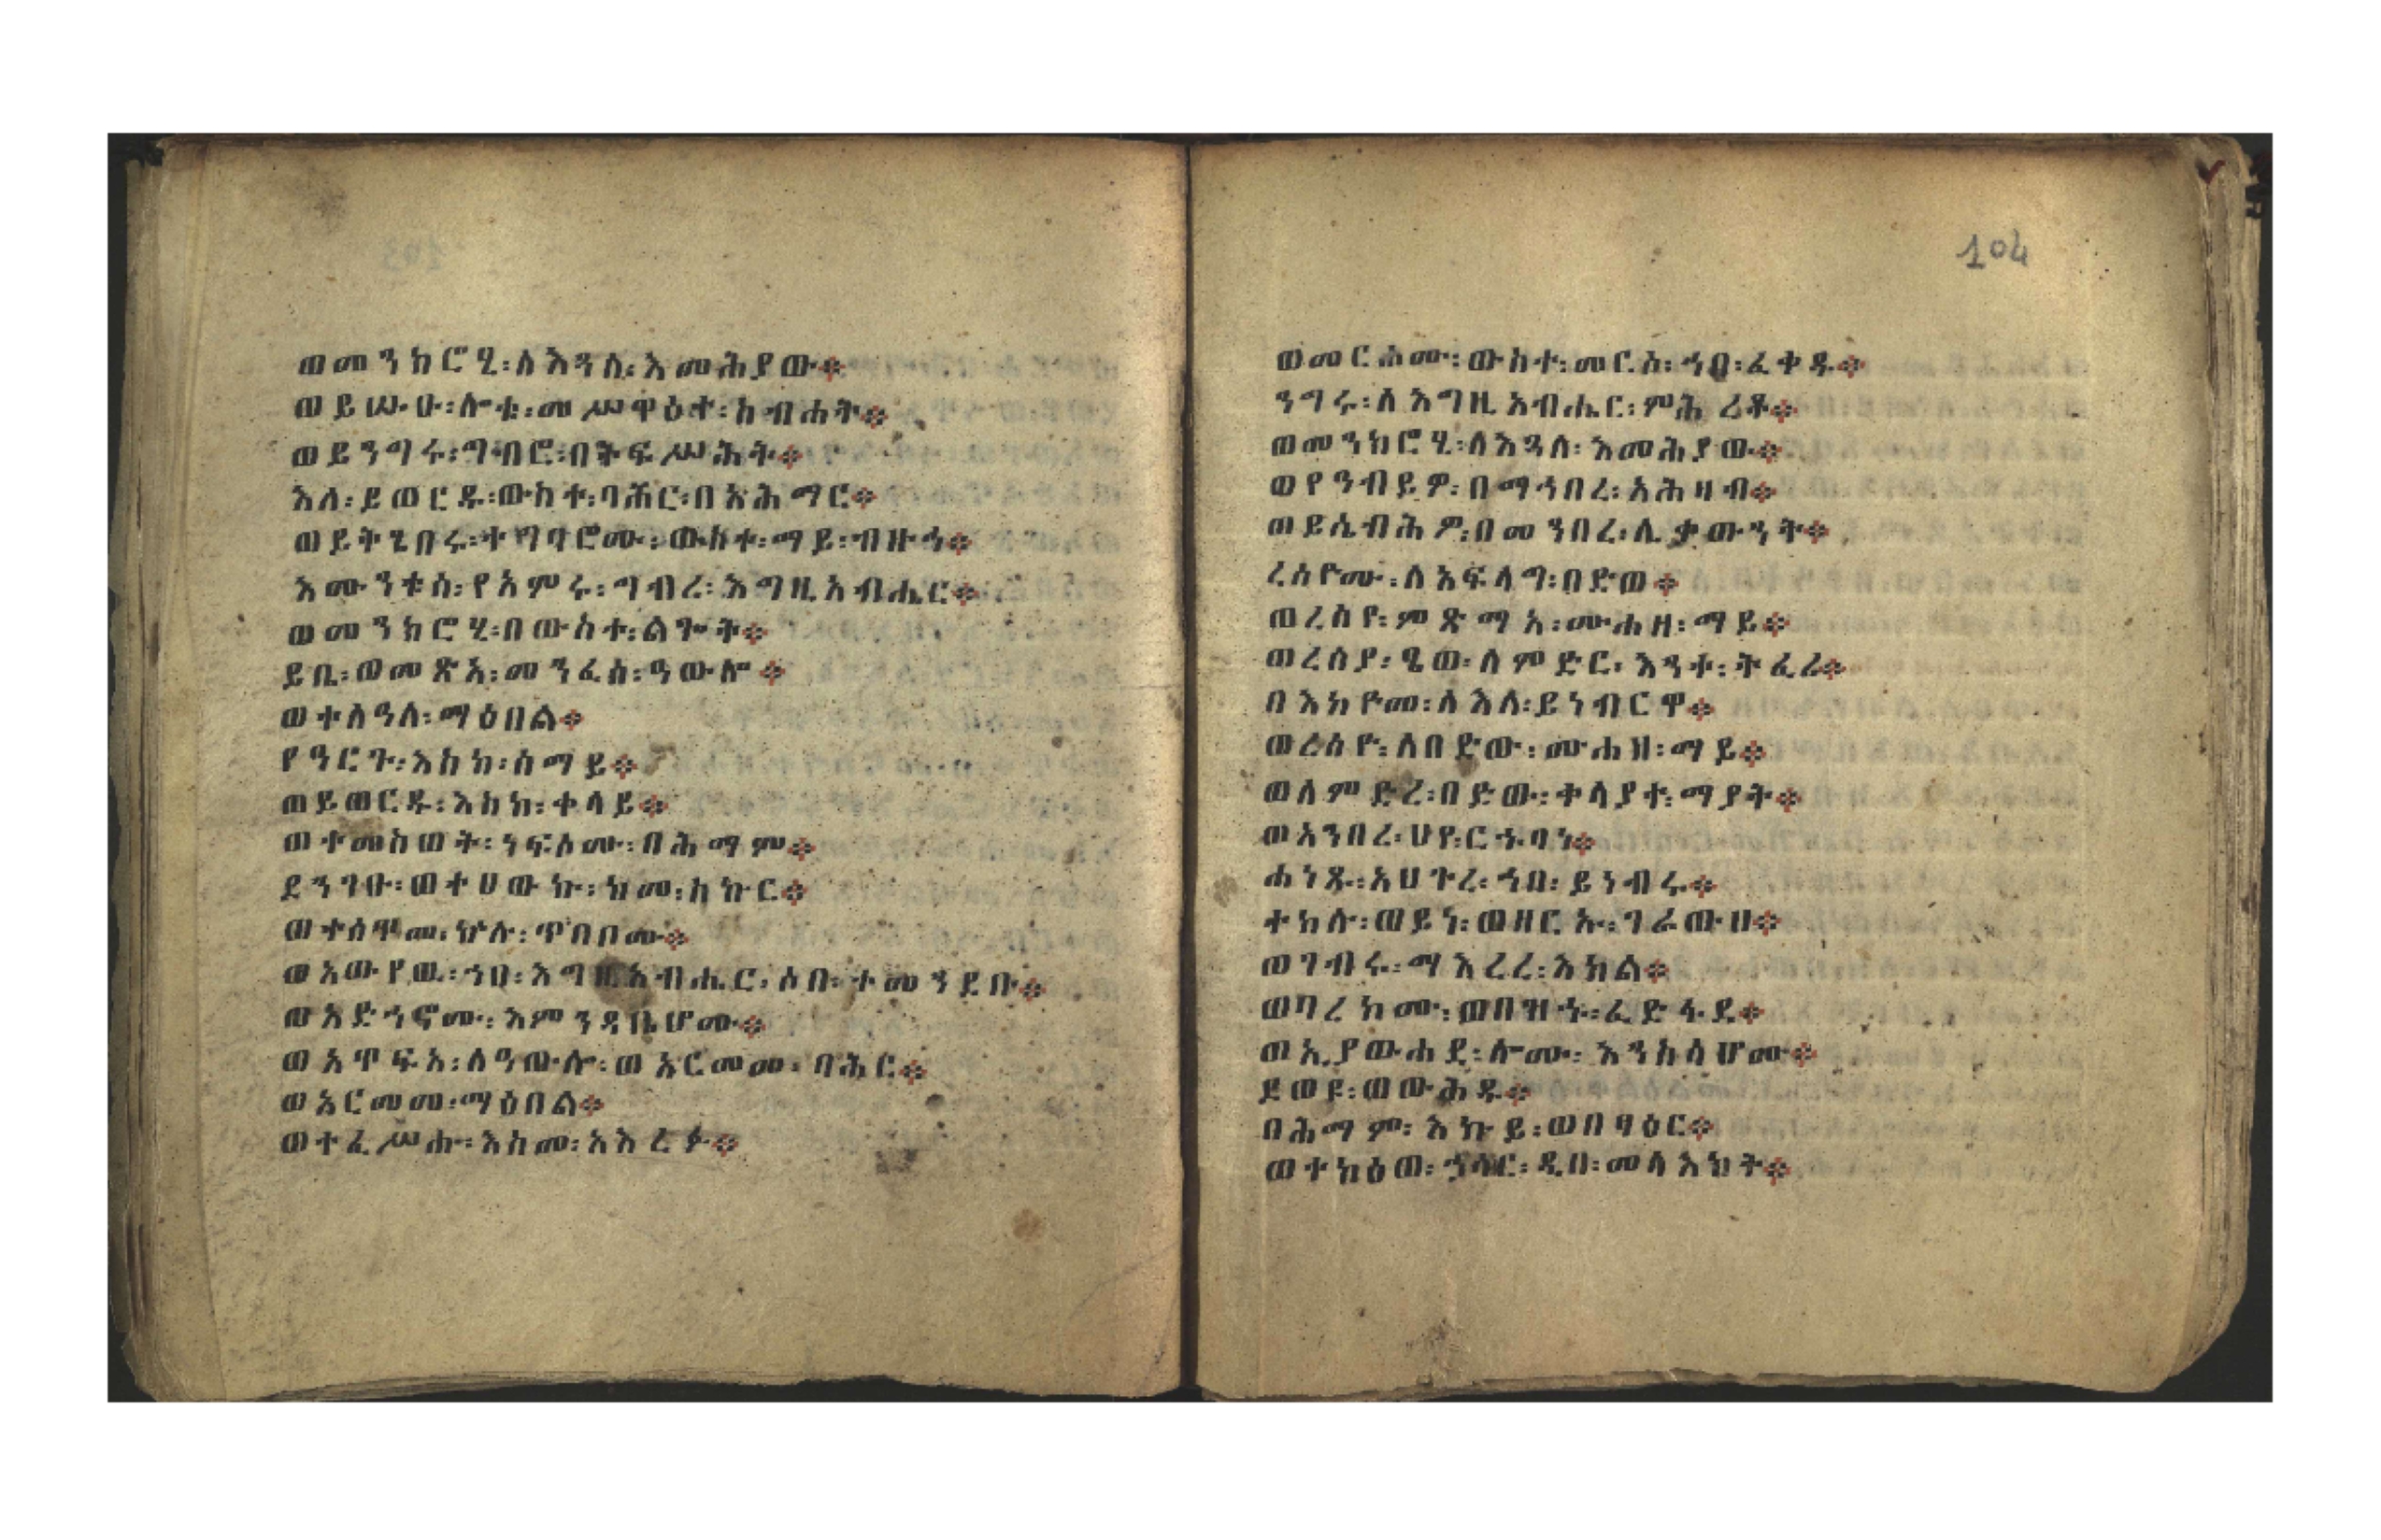 ወመንክሮሂ፡ለእጓለ፡እመሕያው፨
ወይሡዑ፡ሎቱ፡መሥዋዕተ፡ስብሐት፨
ወይንግሩ፡ግብሮ፡በትፍሥሕት፨
እለ፡ይወርዱ፡ውስተ፡ባሕር፡በአሕማር፨
ወይትጌበሩ፡ተግባሮሙ፡ውስተ፡ማይ፡ብዙኅ፨
እሙንቱሰ፡የአምሩ፡ግብረ፡እግዚአብሔር፨
ወመንክሮሂ፡በውስተ፡ልጐት፨
ይቤ፡ወመጽአ፡መንፈሰ፡ዓውሎ፨
ወተለዓለ፡ማዕበል፨
የዓርጉ፡እስከ፡ሰማይ፨
ወይወርዱ፡እስከ፡ቀላይ፨
ወተመስወት፡ነፍሶሙ፡በሕማም፨
ደንገፁ፡ወተሀውኩ፡ከመ፡ስኩር፨
ወተሰጥመ፡ኵሉ፡ጥበቦሙ፨
ወአውየዉ፡ኀበ፡እግዚአብሔር፡ሶበ፡ተመንደቡ፨
ወአድኀኖሙ፡እምንዳቤሆሙ፨
ወአጥፍአ፡ለዓውሎ፡ወአርመመ፡ባሕር፨
ወአርመመ፡ማዕበል፨
ወተፈሥሑ፡እስመ፡አእረፉ፨
104
ወመርሖሙ፡ውስተ፡መርሶ፡ኀበ፡ፈቀዱ፨
ንግሩ፡ለእግዚአብሔር፡ምሕረቶ፨
ወመንክሮሂ፡ለእጓለ፡እመሕያው፨
ወየዓብይዎ፡በማኅበረ፡አሕዛብ፨
ወይሴብሕዎ፡በመንበረ፡ሊቃውንት፨
ረሰዮሙ፡ለአፍላግ፡በድወ፨
ወረሰየ፡ምጽማአ፡ሙሐዘ፡ማይ፨
ወረሰያ፡ፄወ፡ለምድር፡እንተ፡ትፈሪ፨
በእከዮሙ፡ለእለ፡ይነብርዋ፨
ወረሰዮ፡ለበድው፡ሙሐዘ፡ማይ፨
ወለምድረ፡በድው፡ቀላያተ፡ማያት፨
ወአንበረ፡ህየ፡ርኁባነ፨
ሐነጹ፡አህጉረ፡ኀበ፡ይነብሩ፨
ተከሉ፡ወይነ፡ወዘርኡ፡ገራውህ፨
ወገብሩ፡ማእረረ፡እክል፨
ወባረከሙ፡ወበዝኁ፡ፈድፋደ፨
ወኢያውሐደ፡ሎሙ፡እንስሳሆሙ፨
ደወዩ፡ወውሕዱ፨
በሕማም፡እኩይ፡ወበፃዕር፨
ወተክዕወ፡ኀሳር፡ዲበ፡መላእክት፨